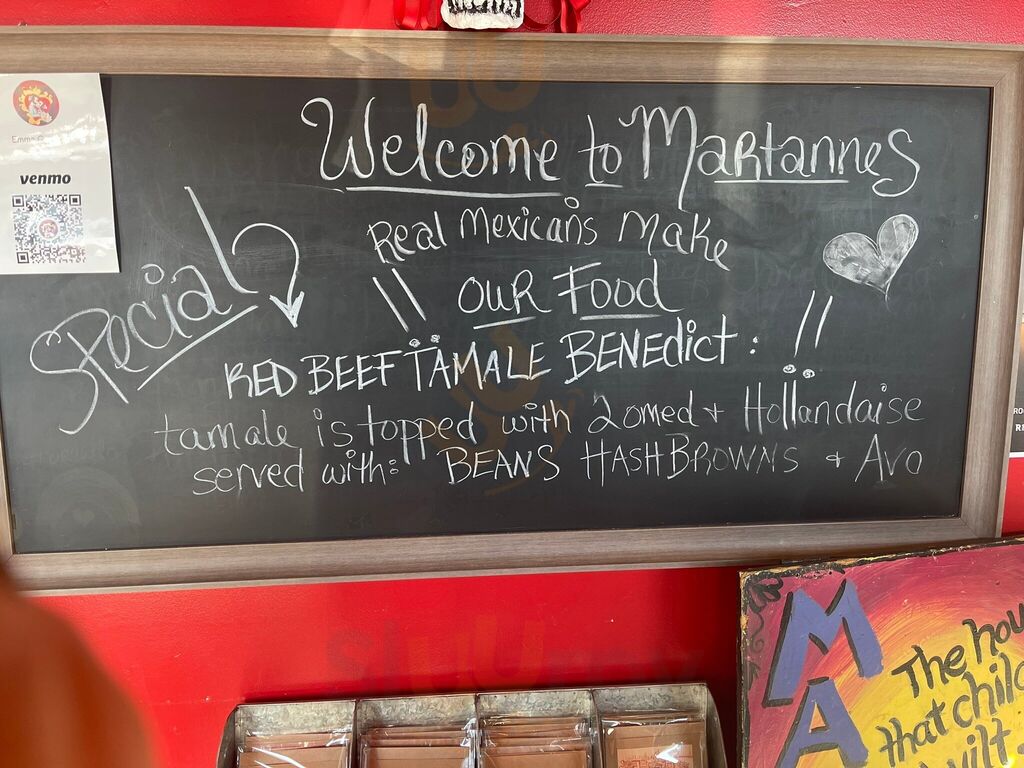 Welcome to MaRtanneS
Real Mexicans Make
OUR Food
Special
RED BEEF TAMALE BENEdict:
tamale is topped with 2omed + Hollandaise
served with: BEANS HASHBROWNS + Avo
venmo
MA
The hou
that chile